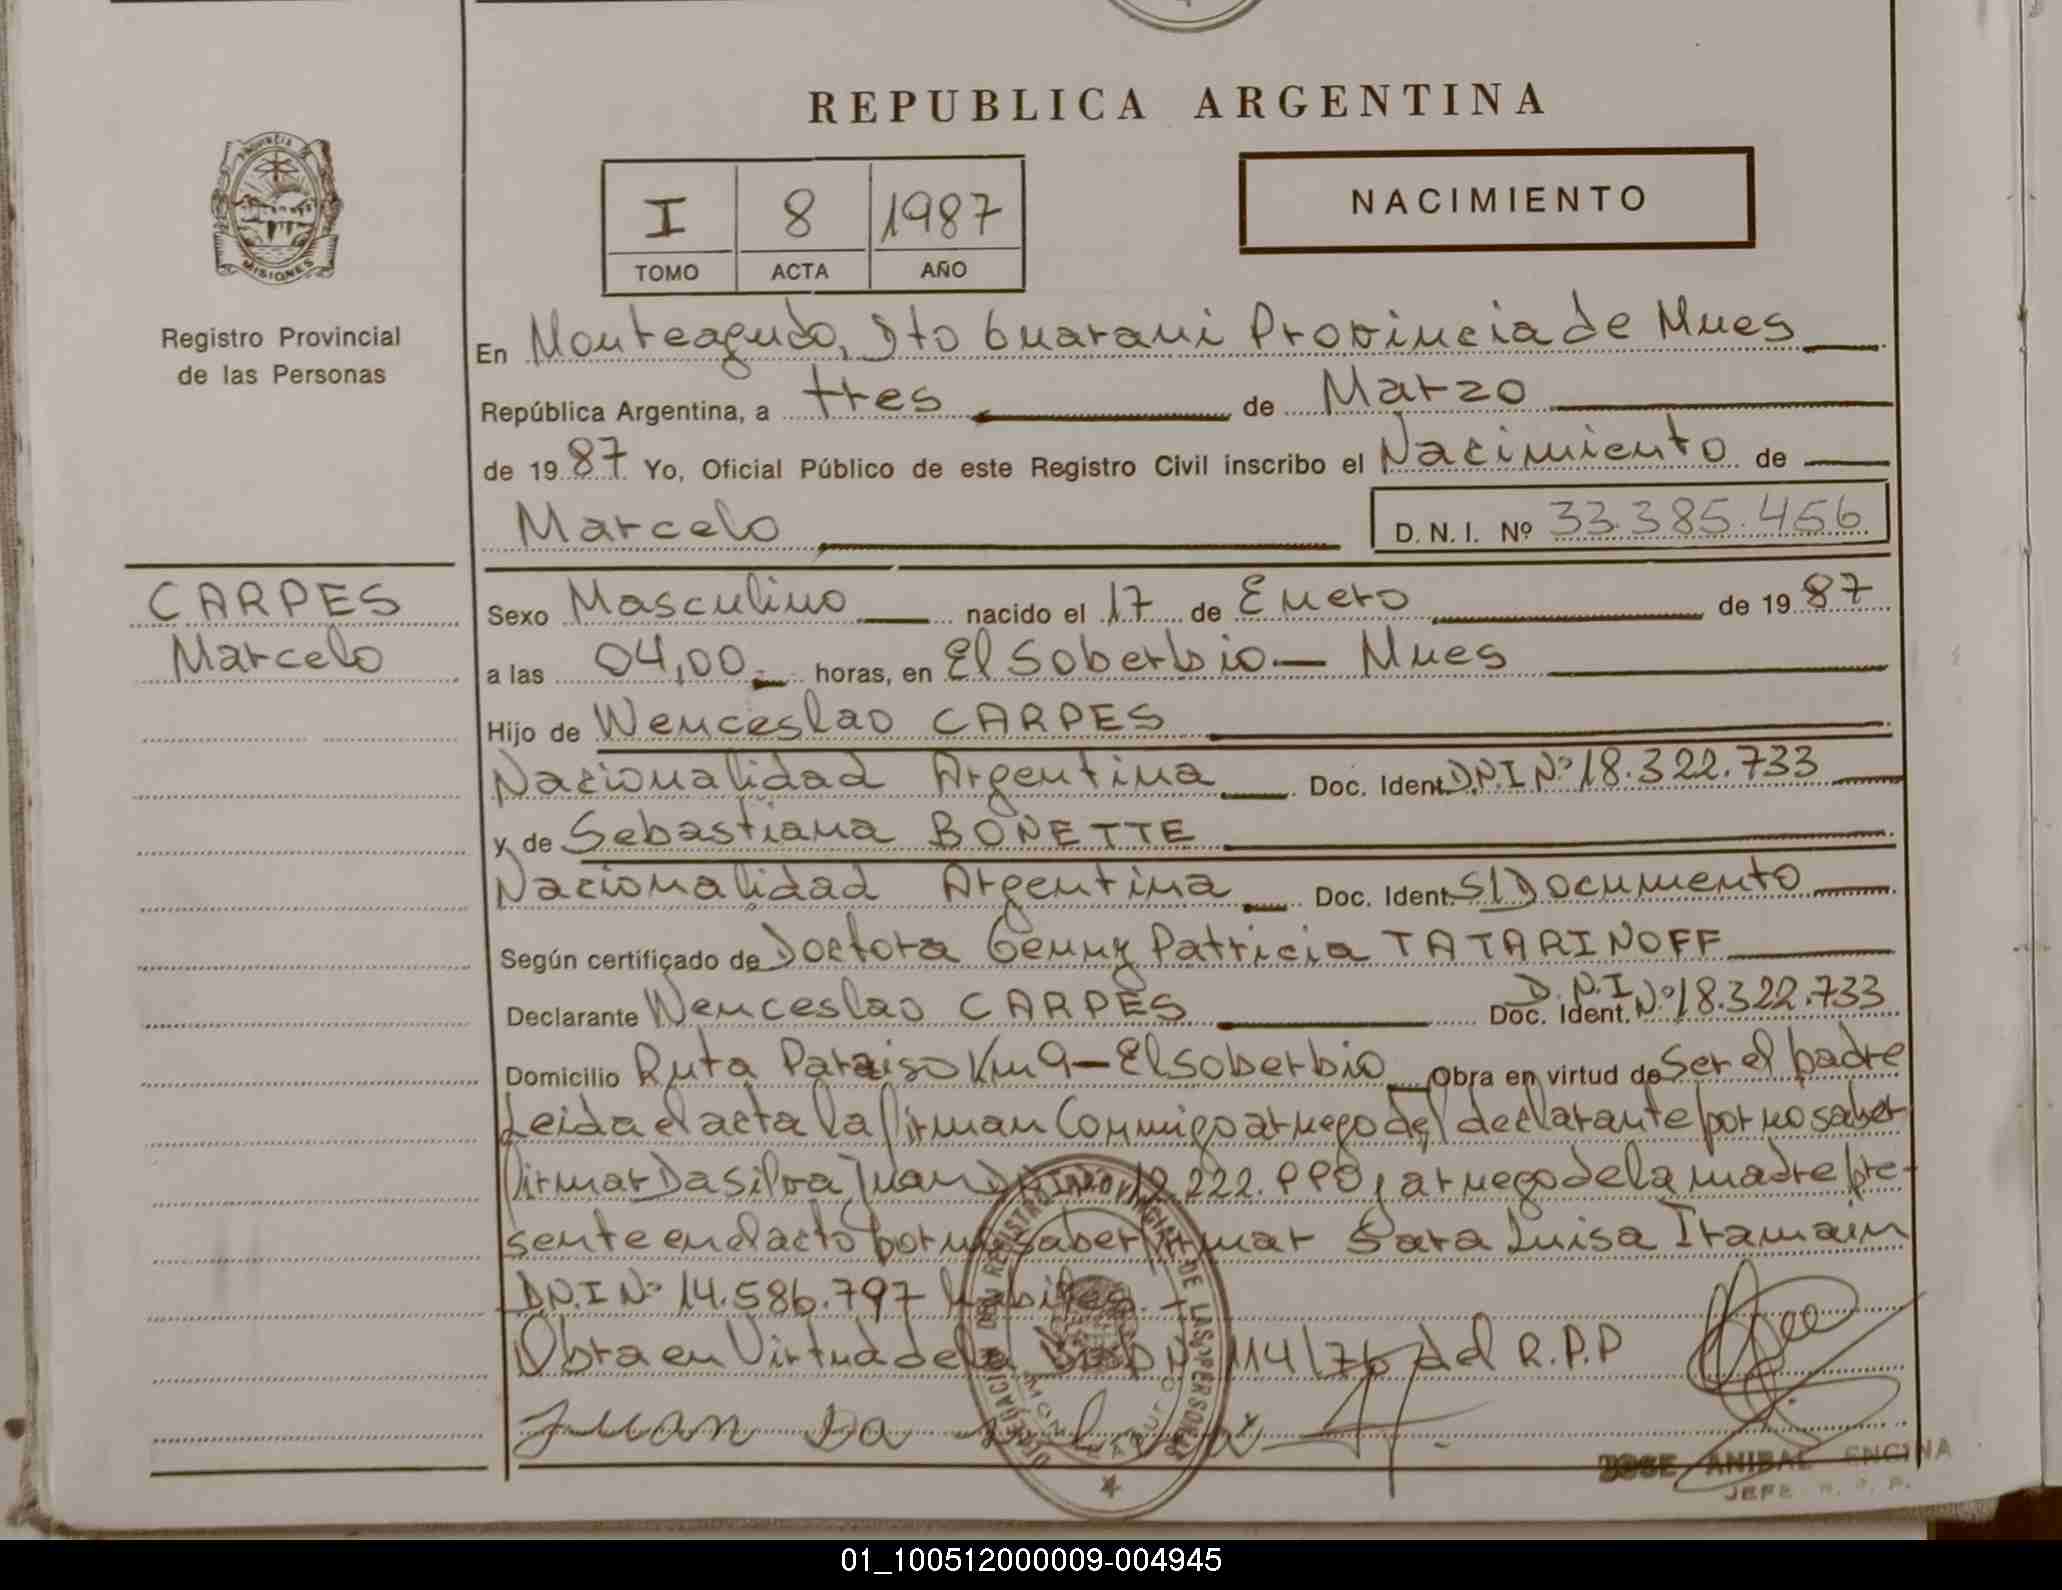 REPUBLICA ARGENTINA
PROVINCIA DE
MISIONES
Registro Provincial
de las Personas
I 8 1987
TOMO ACTA AÑO
NACIMIENTO
En Monteagudo, Dto Guarani Provincia de Mnes
República Argentina, a tres de Marzo
de 1987 Yo, Oficial Público de este Registro Civil inscribo el Nacimiento de
Marcelo D. N. I. Nº 33.385.456
CARPES
Marcelo
Sexo Masculino nacido el 17 de Enero de 1987
a las 04,00 horas, en El Soberbio — Mnes
Hijo de Wenceslao CARPES
Nacionalidad Argentina Doc. Ident. D.N.I Nº 18.322.733
y de Sebastiana BONETTE
Nacionalidad Argentina Doc. Ident. S/Documento
Según certificado de Doctora Genny Patricia TATARINOFF
Declarante Wenceslao CARPES Doc. Ident. D.N.I Nº 18.322.733
Domicilio Ruta Paraiso Km 9 — El Soberbio Obra en virtud de Ser el padre
Leida el acta la firman Conmigo a ruego del declarante por no saber
firmar Da Silva Juan 12.222. , a ruego de la madre pre-
sente en el acto por no saber firmar Sara Luisa Itamain
D.N.I Nº 14.586.797 habiles. —
Obra en Virtud de la Disp Nº 114/76 del R.P.P
Juan Da Silva
JOSE ANIBAL ENCINA
JEFE R. P. P.
01_100512000009-004945